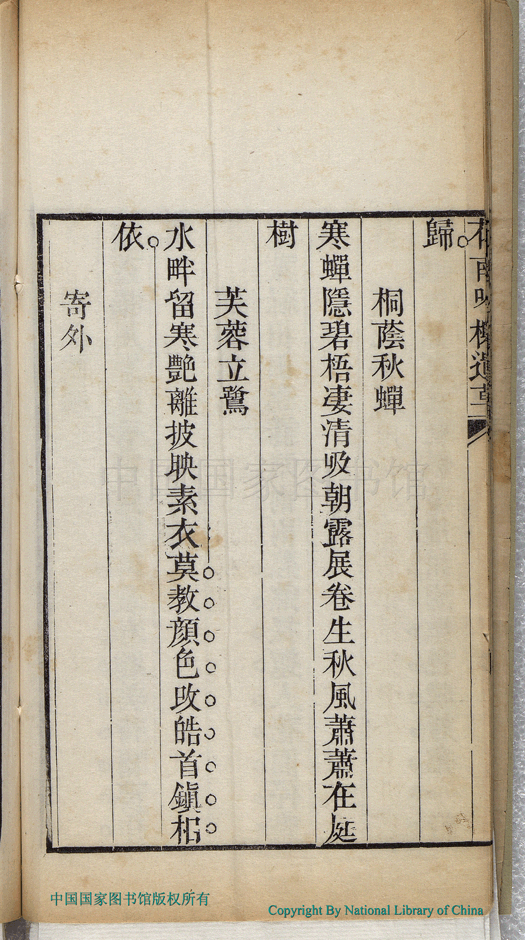 歸
桐蔭秋蟬
寒蟬隱碧梧凄清吸朝露展卷生秋風蕭蕭在庭
樹
芙蓉立鷺
水畔留寒艷離披映素衣莫教顏色改皓首鎮相
依
寄外
中国国家图书馆
中国国家图书馆版权所有
Copyright By National Library of China